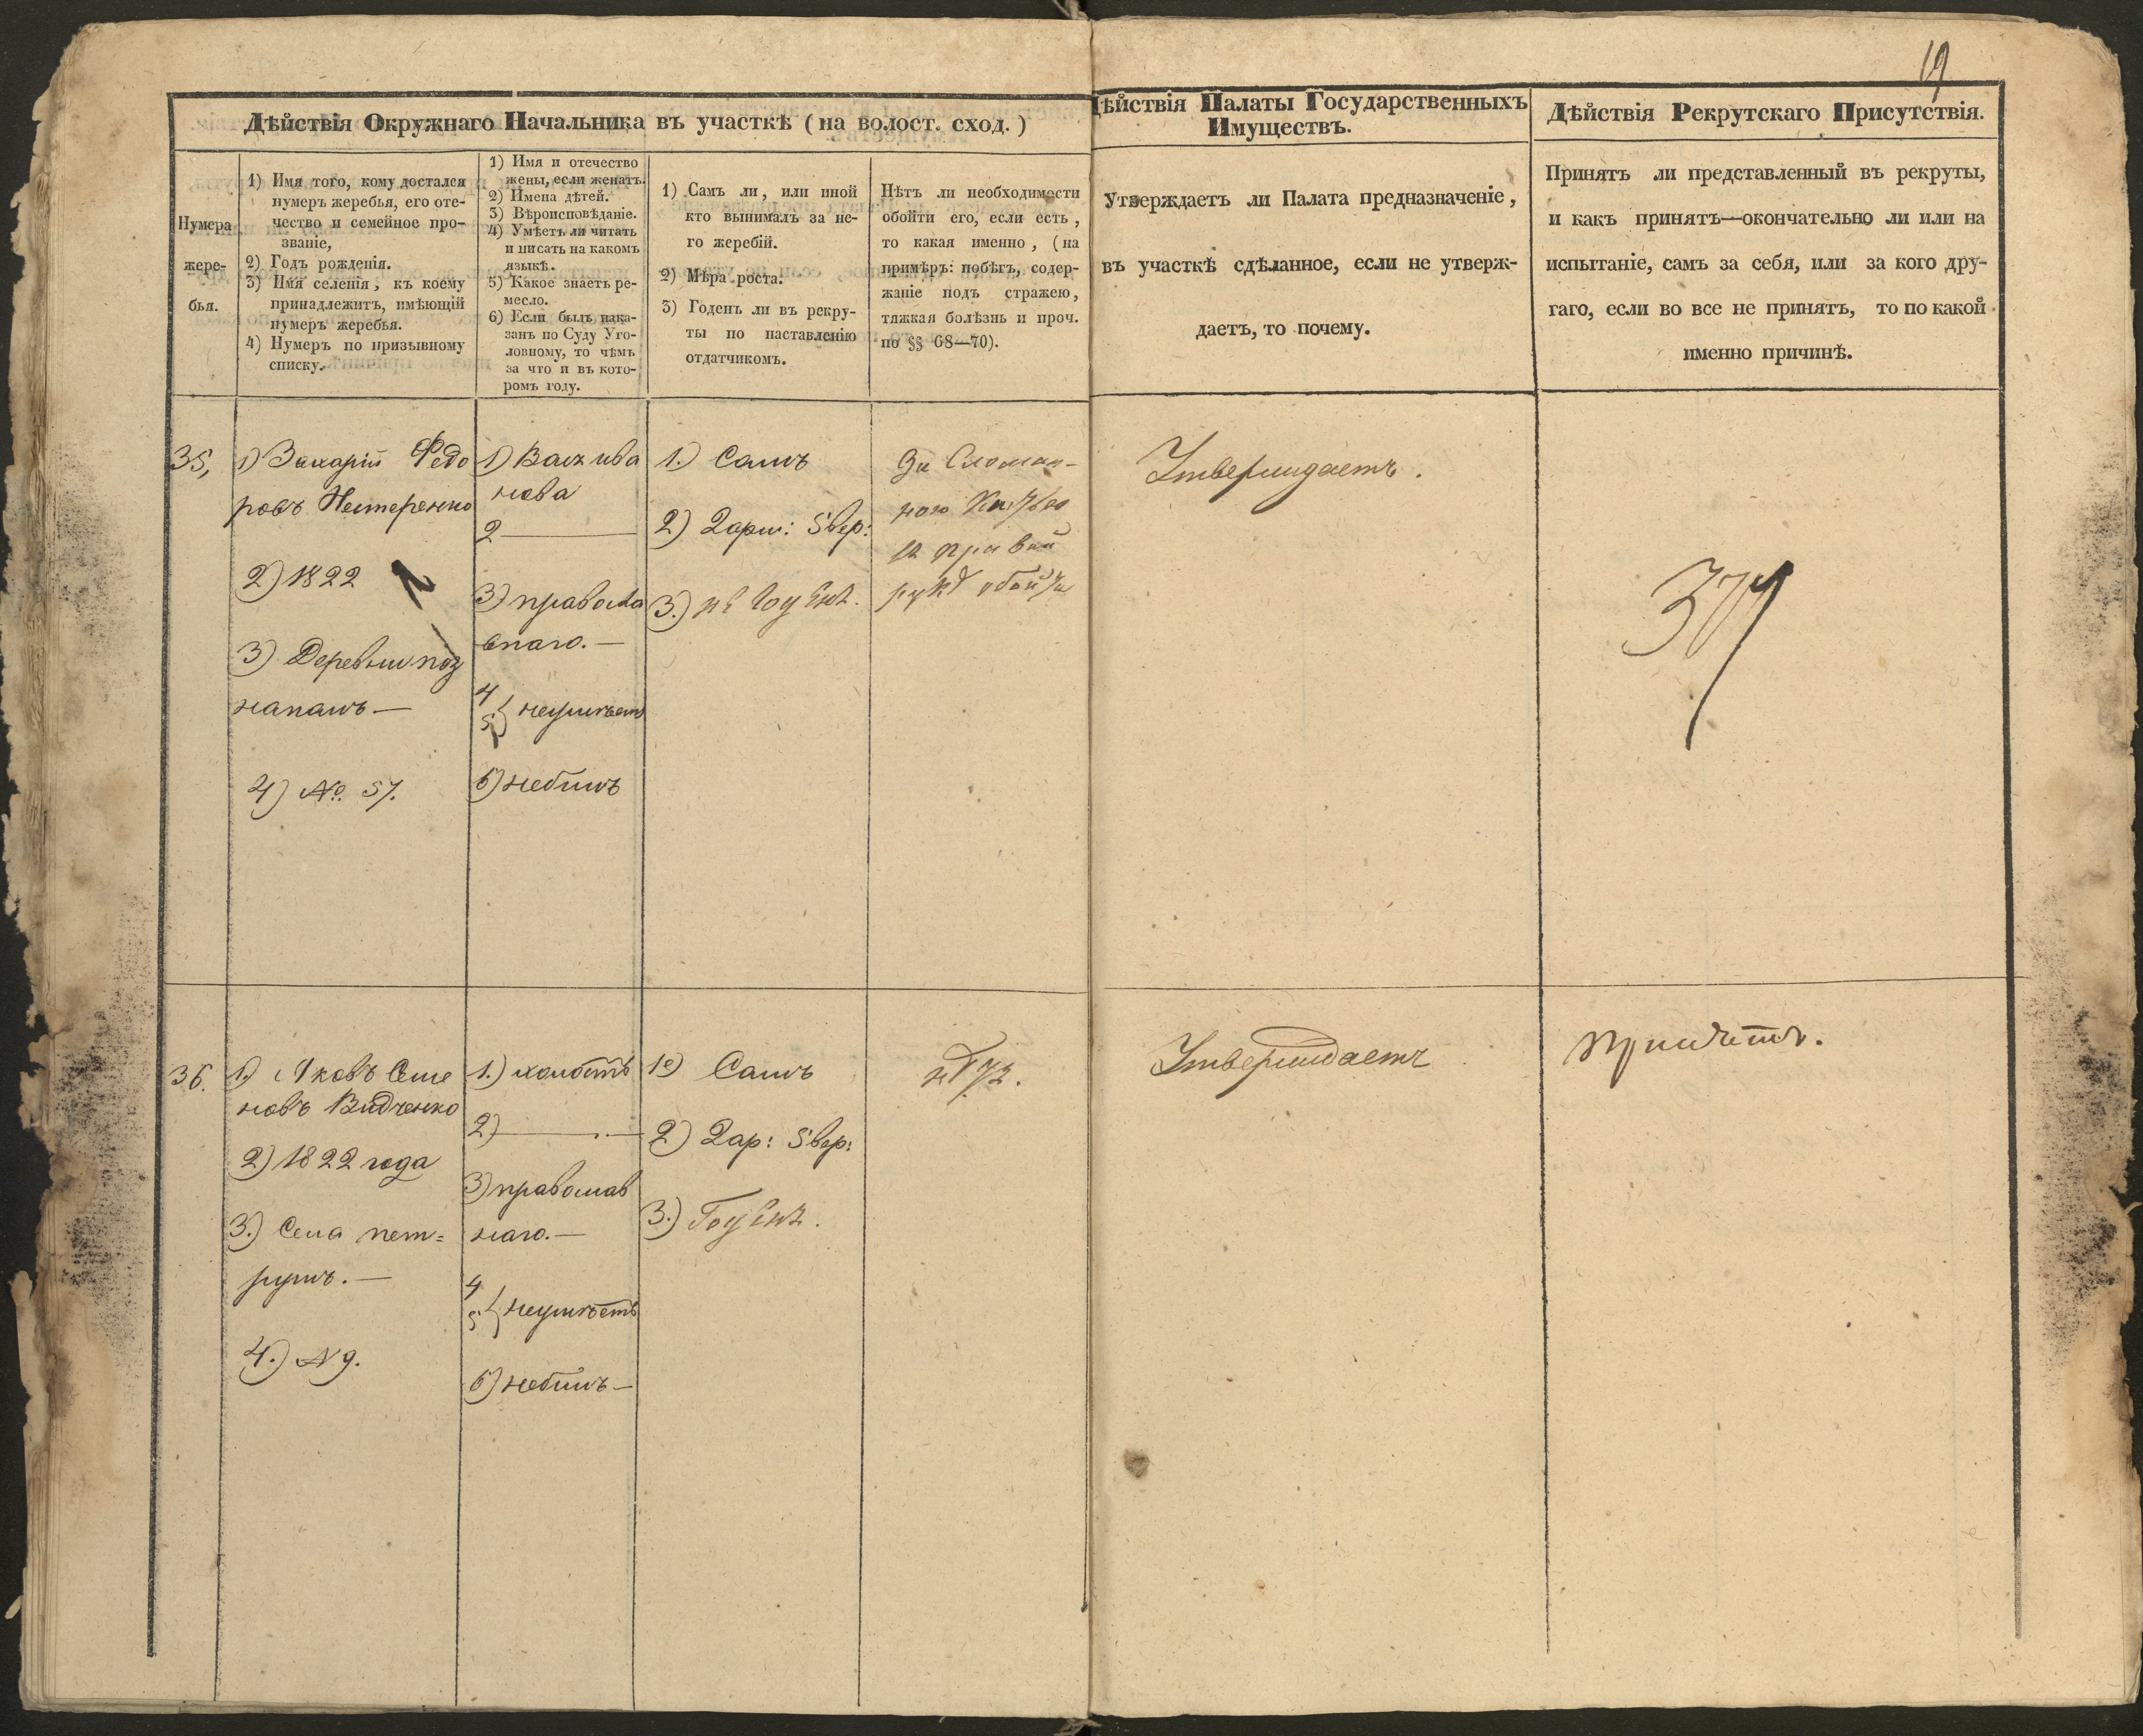 19
Дѣйствія Окружнаго Начальника въ участкѣ ( на волост. сход. )
Нумера
жере-
бья.
1) Имя того, кому достался
нумеръ жеребья, его оте-
чество и семейное про-
званіе,
2) Годъ рожденія.
3) Имя селенія, къ коему
принадлежитъ, имѣющій
нумеръ жеребья.
4) Нумеръ по призывному
списку.
1) Имя и отечество
жены, если женатъ.
2) Имена дѣтей.
3) Вѣроисповѣданіе.
4) Умѣетъ ли читать
и писать на какомъ
языкѣ.
5) Какое знаетъ ре-
месло.
6) Если былъ нака-
занъ по Суду Уго-
ловному, то чѣмъ
за что и въ кото-
ромъ году.
1) Самъ ли, или иной
кто вынималъ за не-
го жеребій.
2) Мѣра роста.
3) Годенъ ли въ рекру-
ты по наставленію
отдатчикомъ.
Нѣтъ ли необходимости
обойти его, если есть,
то какая именно, (на
примѣръ: побѣгъ, содер-
жаніе подъ стражею,
тяжкая болѣзнь и проч.
по §§ 68—70).
Дѣйствія Палаты Государственныхъ
Имуществъ.
Утверждаетъ ли Палата предназначеніе,
въ участкѣ сдѣланное, если не утверж-
даетъ, то почему.
Дѣйствія Рекрутскаго Присутствія.
Принятъ ли представленный въ рекруты,
и какъ принятъ—окончательно ли или на
испытаніе, самъ за себя, или за кого дру-
гаго, если во все не принятъ, то по какой
именно причинѣ.
35,
1) Захарій Федо
ровъ Нестеренко
2) 1822
3) Деревни поз
напаш—
4) №. 57.
1) Васи ива
нова
2 —
3) правосла
внаго.—
4
5 } неумѣетъ
6) небылъ
1.) Самъ
2) 2 арш: 5 вер:
3.) не годенъ.
За Сломан-
ною
въ правой
рукѣ обойти
Утверждаетъ.
36.
1.) Яковъ Семе
новъ Видченко
2) 1822 года
3.) Села пет=
рушъ.—
4.) N 9.
1.) холостъ
2) — . —
3) православ
наго.—
4
5 } неумѣетъ
6) небылъ—
1е) Самъ
2) 2 ар: 5 вер:
3.) Годенъ.
нѣтъ.
Утверждаетъ
Принятъ.